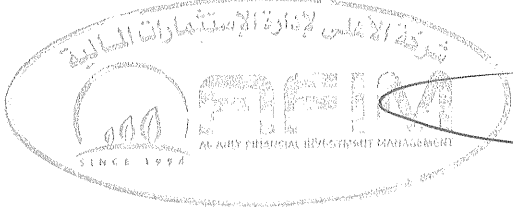 شركة الأعلى لإدارة الإستثمارات المالية
AFIM
FINANCIAL INVESTMENT MANAGEMENT
SINCE 1994